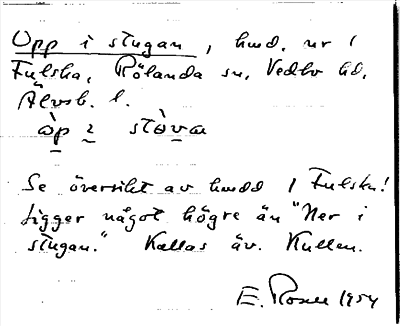 Upp i stugan, hmd. nr 1
Fulska, Rölanda sn, Vedbo hd,
Älvsb. l.
òp i stòva
Se översikt av hmdd i Fulska!
Ligger något högre än "Ner i
stugan." Kallas äv. Kullen.
E. Rosell 1954